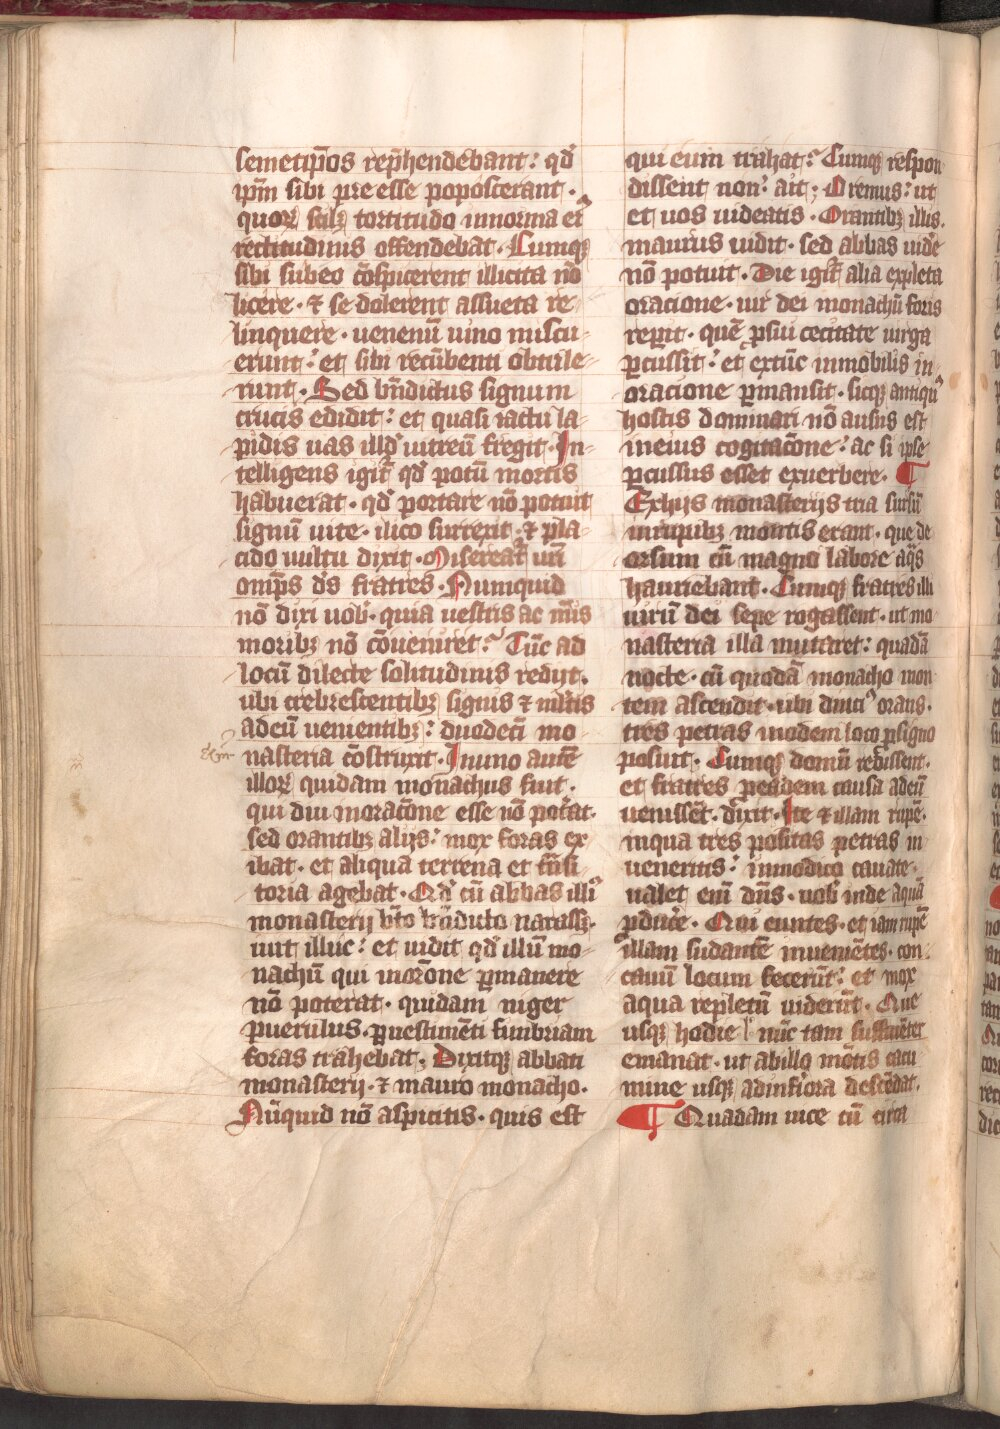 semetip̄os rep̄hendebant: qd̓
ip̄m sibi p̄re esse poposcerant ·
quoꝝ scilꝫ tortitudo in norma eiꝰ
rectitudinis offendebat · Cumqꝫ
sibi sub eo cōspicerent illicita nō
licere · ⁊ se dolerent assueta re-
linquere · uenenū uino miscu-
erunt: et sibi recūbenti obtule-
runt · Sed bn̄dictus signum
crucis edidit: et quasi iactu la-
pidis uas illd̓ uitreū fregit · In-
telligens igit̉ qd̓ potū mortis
habuerat · qd̓ portare nō potuit
signū uite · ilico surrexit · ⁊ pla-
cido uultu dixit · Misereat̉ ur̄i
omp̄s ds̄ fratres · Numquid
nō dixi uob̓ · quia uestris ac meis
moribꝫ nō cōueniret? Tūc ad
locū dilecte solitudinis redijt.
ubi crebrescentibꝫ signis ⁊ multis
ad eū uenientibꝫ: duodecī mo
nasteria cōstruxit · In uno autē
illoꝝ quidam monachus fuit ·
qui diu in orac̄one esse nō pot̓at ·
sed orantibꝫ alijs: mox foras ex
ibat · et aliqua terrena et trāsi
toria agebat · Qd̓ cū abbas illiꝰ
monasterij bt̄o bn̄dicto narrassꝫ ·
iuit illuc: et uidit qd̓ illū mo-
nachū qui in or̄one ꝑmanere
nō poterat · quidam niger
puerulus · ꝑ uestimēti fimbriam
foras trahebat · Dixitqꝫ abbati
monasterij · ⁊ mauro monacho ·
Nūquid nō aspicitis · quis est
qui eum trahat? Cumqꝫ respon
dissent non: ait; Oremus: ut
et uos uideatis · Orantibꝫ illis.
maurus uidit · sed abbas uidēe
nō potuit · Die igit̉ alia expleta
oracione · uir dei monachū foris
rep̄it · quē ꝓ sui cecitate uirga
ꝑcussit: et extūc immobilis in-
oracione ꝑmansit · sicqꝫ antiquꝰ
hostis dominari nō ausus est
in eius cogitac̄one: ac si ipse
ꝑcussus esset ex uerbere · ¶
Ex hijs monasterijs tria sursū
in rupibꝫ montis erant · que de
orsum cū magno labore aqᷓs
hauriebant · Cumqꝫ fratres illi
uirū dei sepe rogassent · ut mo
nasteria illa mutaret: quadā
nocte · cū quodā monacho mon
tem ascendit · ubi diuciꝰ orans ·
tres petras in odem loco ꝓ signo
posuit · Cumqꝫ domū redissent ·
et fratres ꝓ eadem causa ad eū
uenissēt · dixit · Ite ⁊ illam rupē ·
in qua tres positas petras in
ueneritis: in modico cauate ·
ualet em̄ dn̄s · uob̓ inde aquā
ꝓduc̓e · Qui euntes · et iam rupē
illam sudantē inueniētes · con
cauū locum fecerūt: et mox
aqua repletū uiderūt · Que
usqꝫ hodie ł nūc tam sufficiēter
emanat · ut ab illo mōtis cacu
mine usqꝫ ad inf̓iora descēdat ·
¶ Quadam uice cū circa